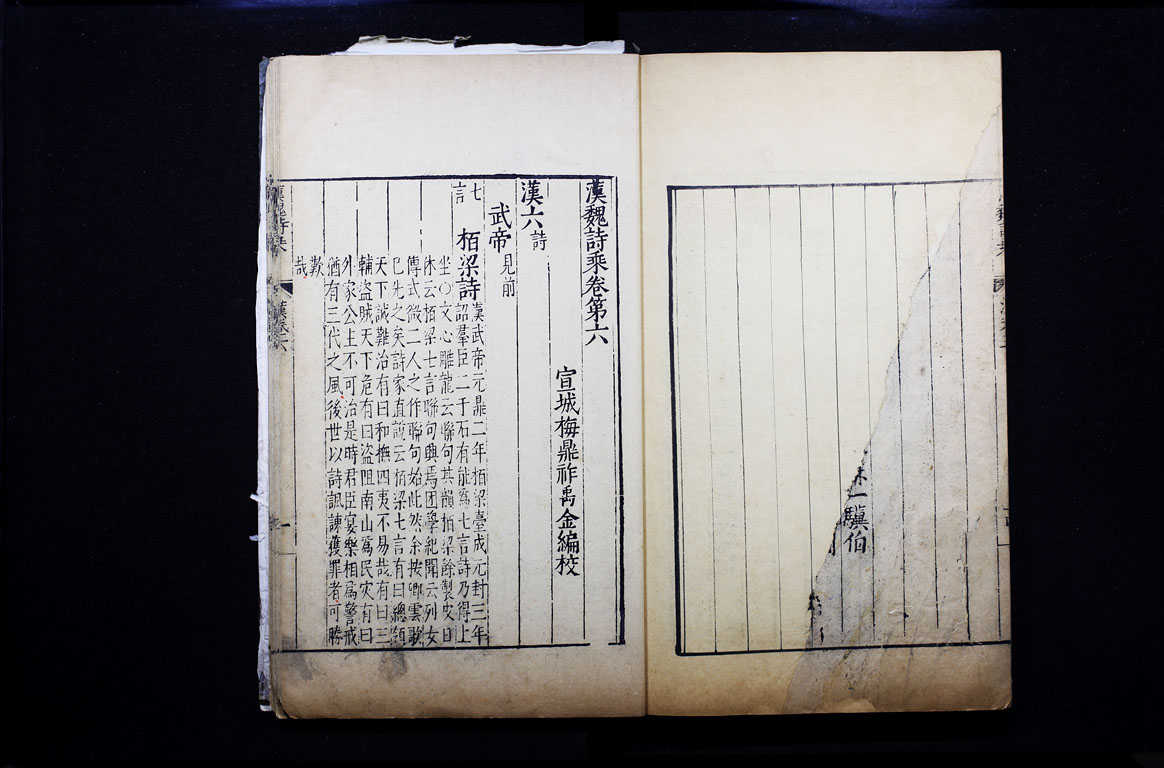 一驥伯
漢魏詩乘卷第六
宣城梅鼎祚禹金編校
漢六詩
武帝見前
七言
栢梁詩漢武帝元鼎二年栢梁臺成元封三年
詔羣臣二千石有能爲七言詩乃得上
坐〇文心雕龍云聯句共韻栢梁餘製皮日
休云栢梁七言聯句興焉困學紀聞云列女
傳式微二人之作聯句始此然余按卿雲歌
已先之矣詩家直說云栢梁七言有曰總領
天下誠難治有曰和撫四夷不易哉有曰三
輔盜賊天下危有曰盜阻南山爲民灾有曰
外家公主不可治是時君臣宴樂相爲警戒
猶有三代之風後世以詩諷諫獲罪者可勝
歎
哉
漢魏詩乘
漢卷六
一